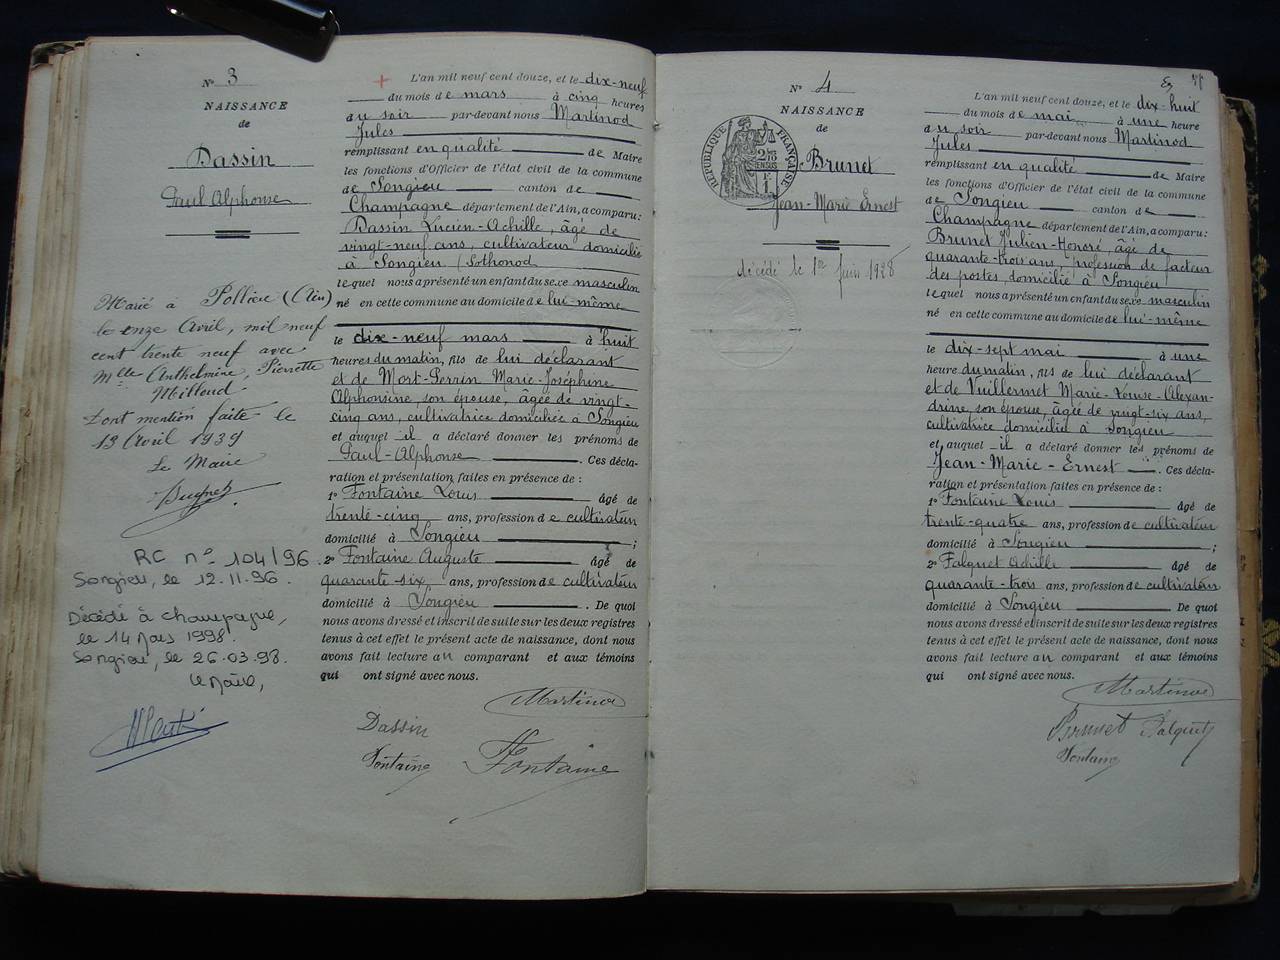 N° 3
NAISSANCE
de
Dassin
Paul Alphonse
Marié à Pollieu (Ain)
le onze Avril, mil neuf
cent trente neuf avec
Mlle Anthelmine, Pierrette
Milloud
Dont mention faite le
13 Avril 1939
Le Maire
RC n° 104/96.
Songieu, le 12.11.96.
Décédé à Champagne,
le 14 Mars 1998.
Songieu, le 26.03.98.
Le Maire,
L'an mil neuf cent douze, et le dix-neuf
du mois de mars à cinq heures
du soir par-devant nous Martinod
Jules
remplissant en qualité de Maire
les fonctions d'Officier de l'état civil de la commune
de Songieu canton de
Champagne département de l'Ain, a comparu :
Dassin Lucien-Achille, âgé de
vingt-neuf ans, cultivateur domicilié
à Songieu (Sothonod
lequel nous a présenté un enfant du sexe masculin
né en cette commune au domicile de lui-même
le dix-neuf mars à huit
heures du matin, fils de lui déclarant
et de Mort-Perrin Marie-Joséphine
Alphonsine, son épouse, âgée de vingt-
cinq ans, cultivatrice domiciliée à Songieu
et auquel il a déclaré donner les prénoms de
Paul-Alphonse. Ces décla-
ration et présentation faites en présence de :
1° Fontaine Louis âgé de
trente-cinq ans, profession de cultivateur
domicilié à Songieu ;
2° Fontaine Auguste âgé de
quarante-six ans, profession de cultivateur
domicilié à Songieu. De quoi
nous avons dressé et inscrit de suite sur les deux registres
tenus à cet effet le présent acte de naissance, dont nous
avons fait lecture au comparant et aux témoins
qui ont signé avec nous.
Martinod
Dassin
Fontaine Fontaine
N° 4
NAISSANCE
de
RÉPUBLIQUE FRANÇAISE
Brunet
Jean-Marie Ernest
décédé le 1er Juin 1928
L'an mil neuf cent douze, et le dix-huit
du mois de mai à une heure
du soir par-devant nous Martinod
Jules
remplissant en qualité de Maire
les fonctions d'Officier de l'état civil de la commune
de Songieu canton de
Champagne département de l'Ain, a comparu :
Brunet Julien-Honoré, âgé de
quarante-trois ans, profession de facteur
des postes, domicilié à Songieu
lequel nous a présenté un enfant du sexe masculin
né en cette commune au domicile de lui-même
le dix-sept mai à une
heure du matin, fils de lui déclarant
et de Vuillermet Marie-Louise-Alexan-
drine, son épouse, âgée de vingt-six ans,
cultivatrice domiciliée à Songieu
et auquel il a déclaré donner les prénoms de
Jean-Marie-Ernest. Ces décla-
ration et présentation faites en présence de :
1° Fontaine Louis âgé de
trente-quatre ans, profession de cultivateur
domicilié à Songieu ;
2° Falquet Achille âgé de
quarante-trois ans, profession de cultivateur
domicilié à Songieu De quoi
nous avons dressé et inscrit de suite sur les deux registres
tenus à cet effet le présent acte de naissance, dont nous
avons fait lecture au comparant et aux témoins
qui ont signé avec nous.
Martinod
Brunet Falquet
Fontaine